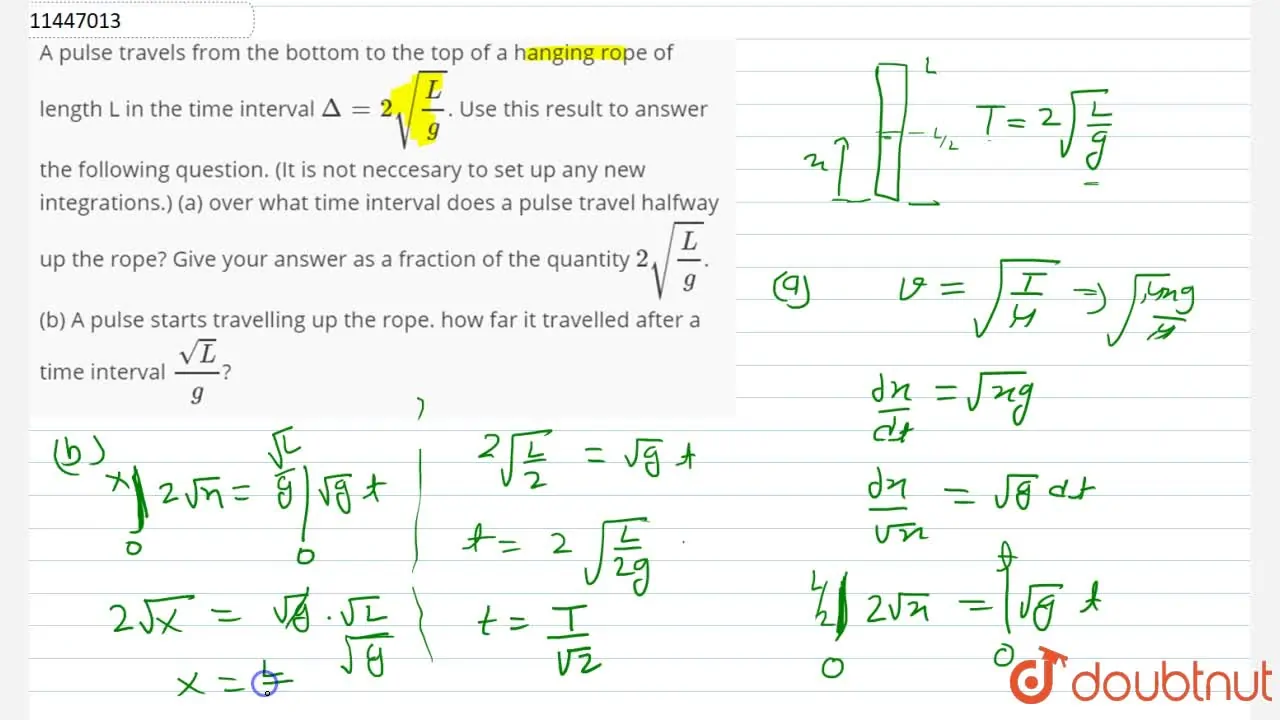 11447013
A pulse travels from the bottom to the top of a hanging rope of
length L in the time interval Δ = 2√(L/g). Use this result to answer
the following question. (It is not neccesary to set up any new
integrations.) (a) over what time interval does a pulse travel halfway
up the rope? Give your answer as a fraction of the quantity 2√(L/g).
(b) A pulse starts travelling up the rope. how far it travelled after a
time interval √L/g?
L
L/2
x
T = 2√(L/g)
(a) v = √(T/μ) ⇒
dx/dt = √xg
dx/√x = √g dt
L/2 | 2√x = | √g t
0 0
t
(b)
x | 2√x = √L/g | √g t
0 0
2√x = √g · √L/√g
x = L
2√(L/2) = √g t
t = 2√(L/2g)
t = T/√2
doubtnut